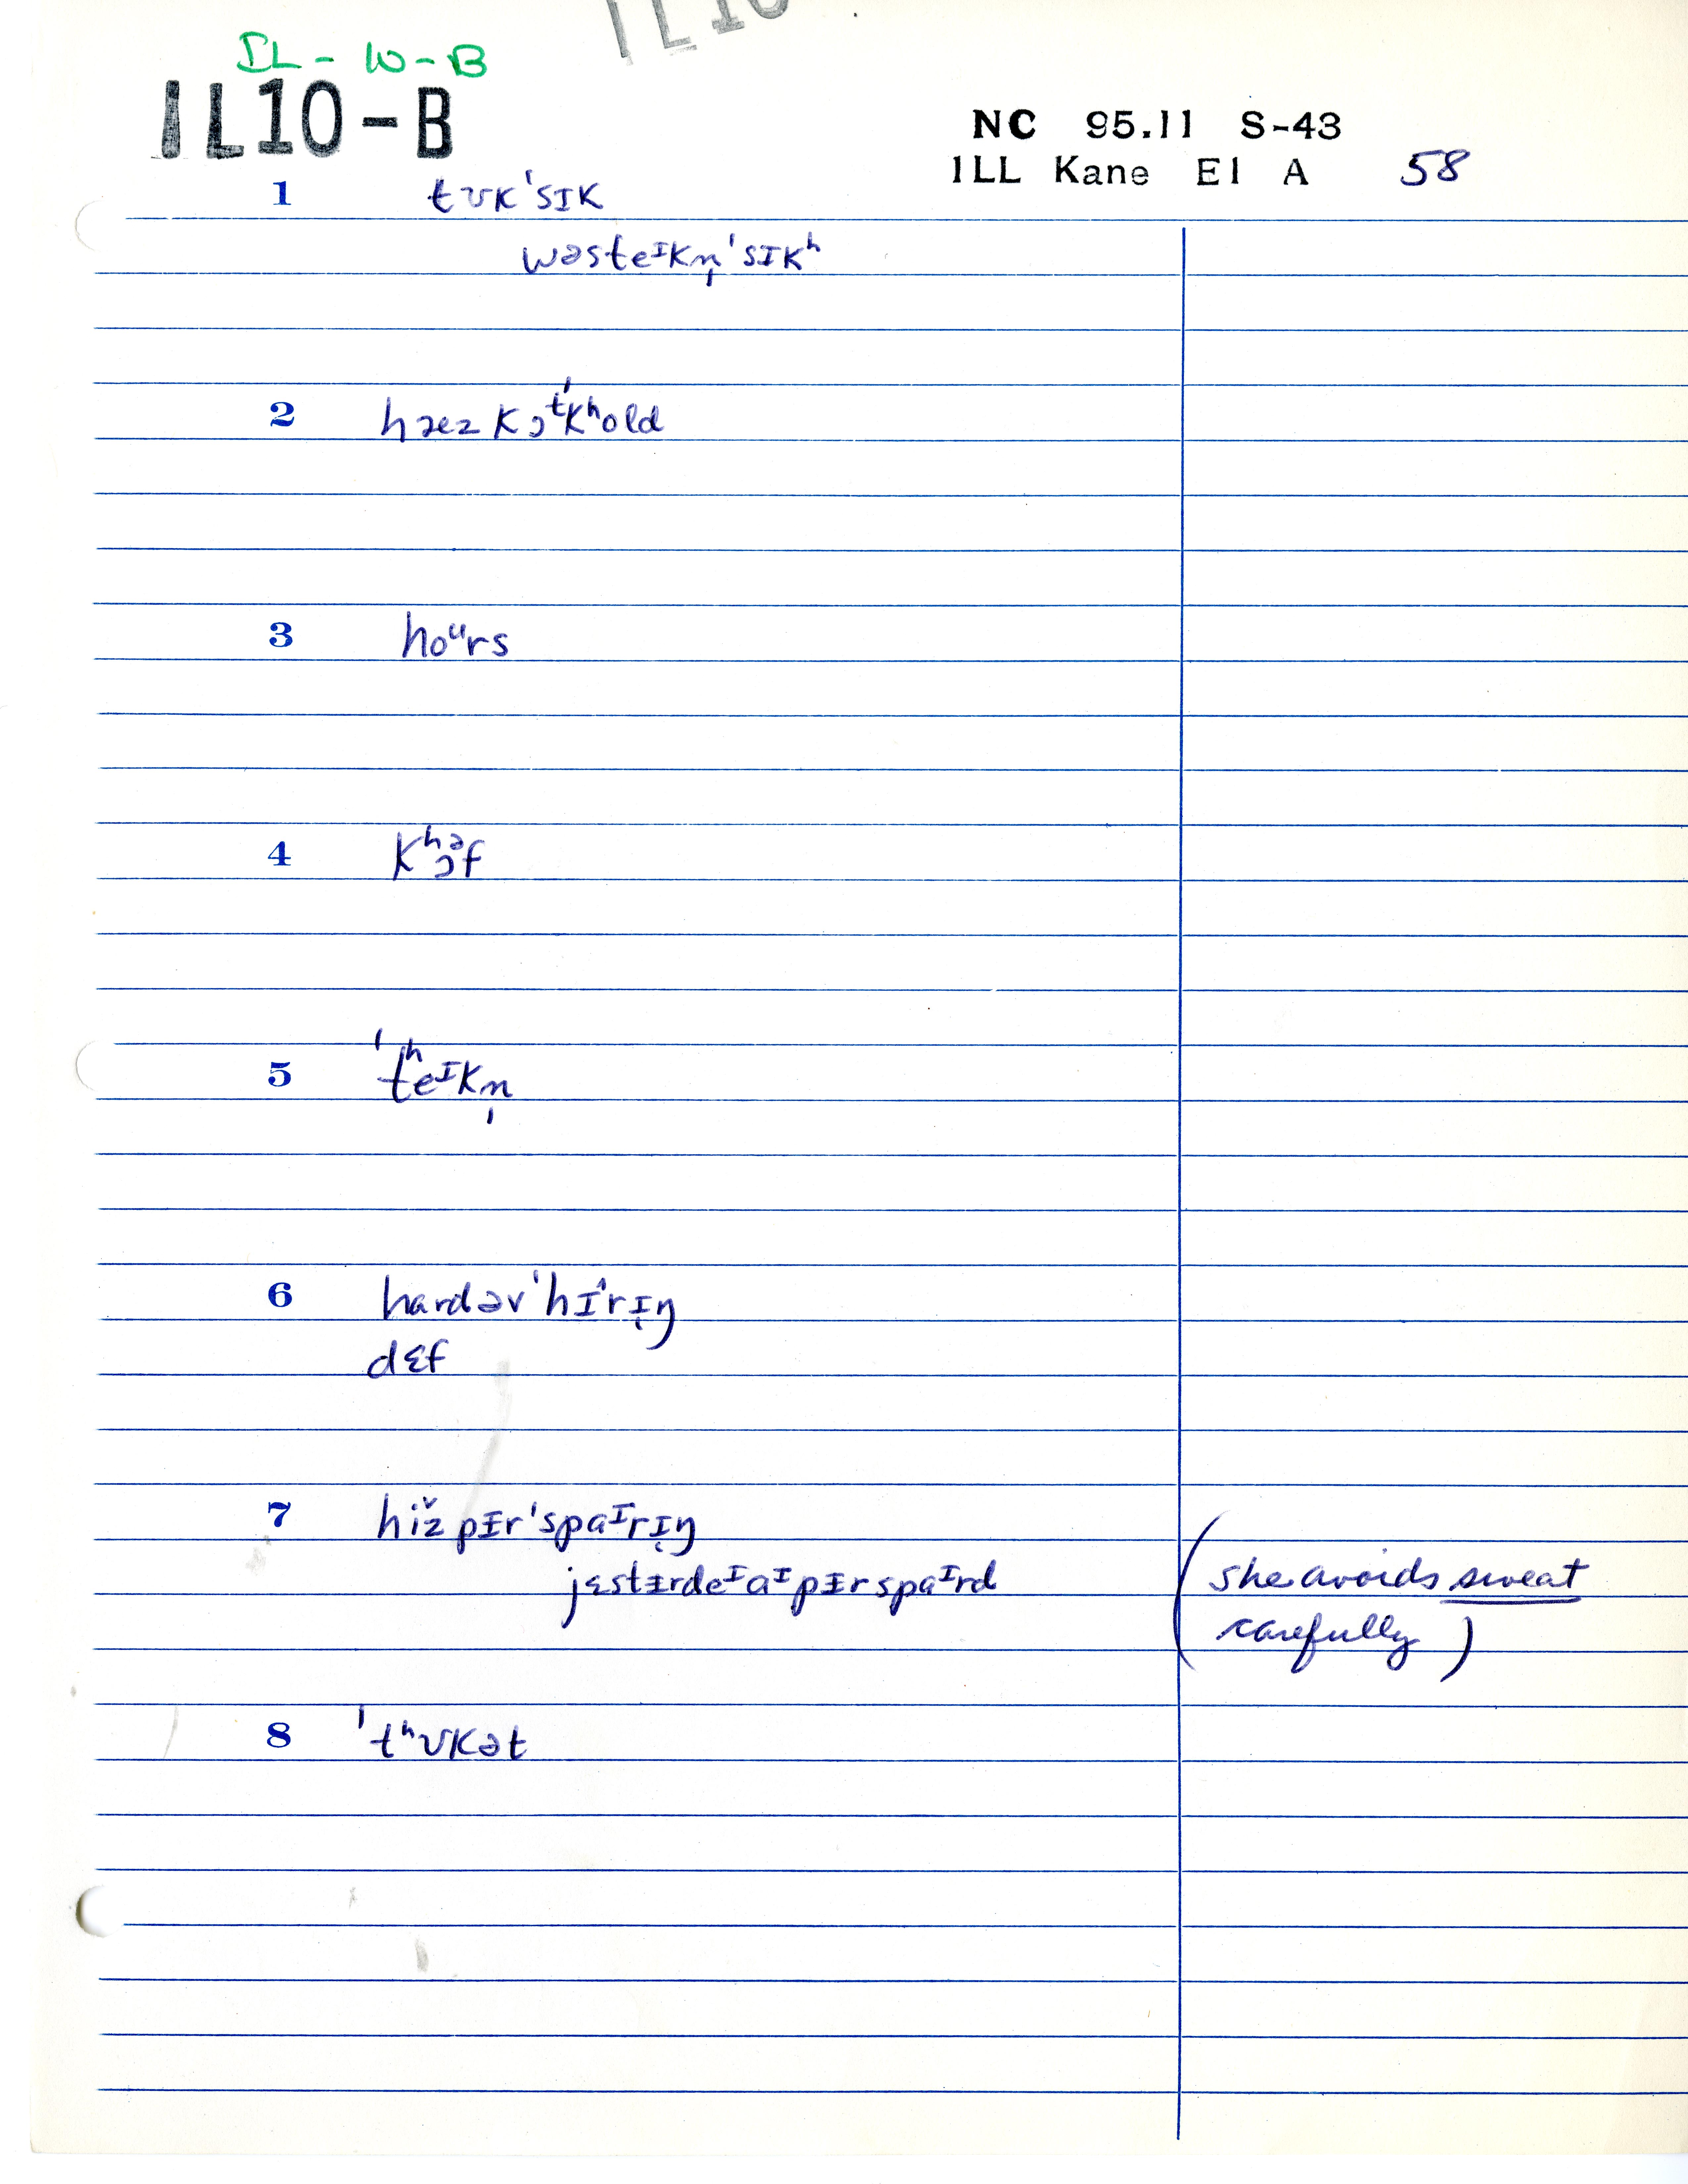 IL10
IL-10-B
IL10-B
NC 95.11 S-43
ILL Kane El A 58
1 tʊkˈsɪk
wəsteᶦkn̩ˈsɪkʰ
2 hæez kɔᵗˈkʰold
3 hoᵘrs
4 kʰɔᵊf
5 ˈtʰeᶦkn̩
6 hardəvˈhɪ̂rɪ̨ŋ
dɛf
7 hiž̬pɪrˈspaᶦrɪ̨ŋ
jɛstɨrdeᶦaᶦpɨrspaᶦrd
(she avoids sweat
carefully)
8 ˈtʰʊkət